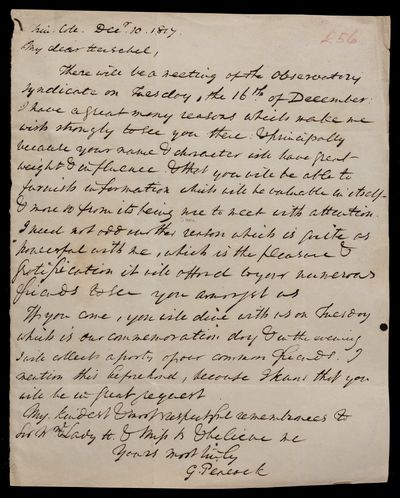 Trin. Col. Decr. 10. 1817.
£56
My dear Herschel,
There will be a meeting of the Observatory
Syndicate on Tuesday, the 16th of December:
I have a great many reasons which make me
wish strongly to see you there: & principally
because your name & character will have great
weight & influence & that you will be able to
furnish information which will be valuable in itself
& more so from its being sure to meet with attention.
I need not add another reason which is quite as
powerful with me, which is the pleasure &
gratification it will afford to your numerous
friends to see you amongst us
If you come, you will dine with us on Tuesday
which is our commemoration day & in the evening
I will collect a party of our common friends. I
mention this beforehand, because I know that you
will be in great request
My kindest & most respectful remembrances to
Sir Wm. Lady H. & Miss H & believe me
Yours most truly
G. Peacock